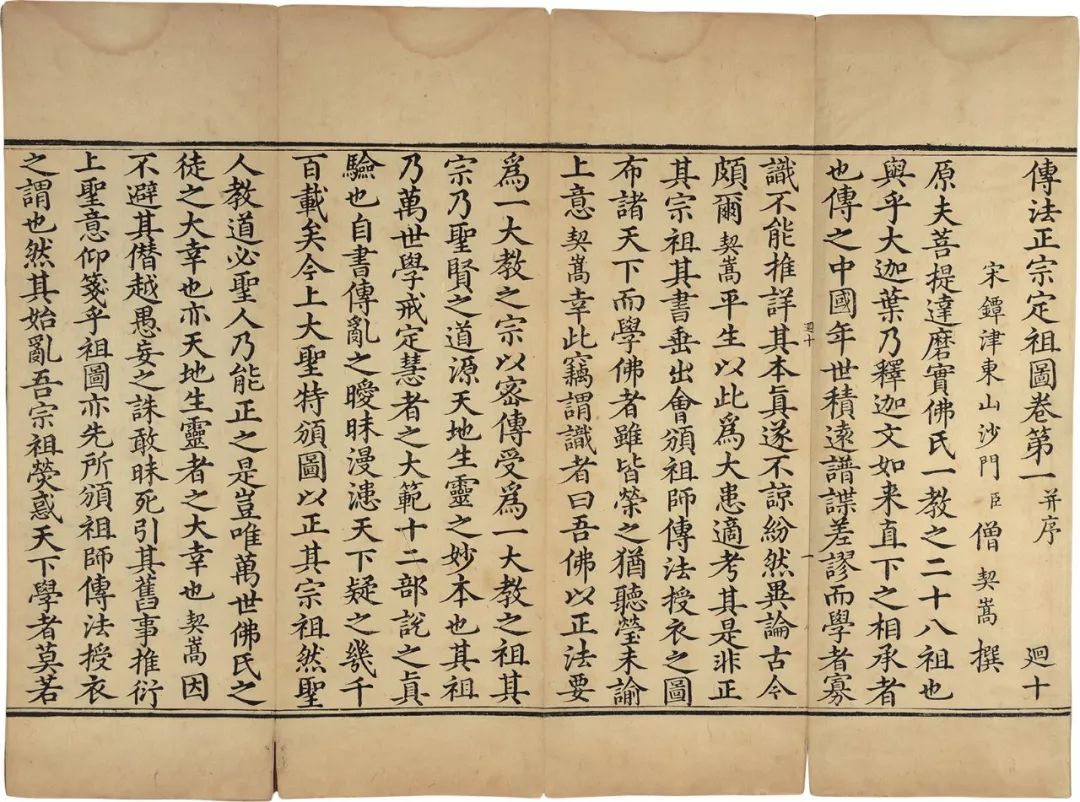 傳法正宗定祖圖卷第一 并序 迴十
宋鐔津東山沙門臣僧契嵩撰
原夫菩提達磨實佛氏一教之二十八祖也
與乎大迦葉乃釋迦文如来直下之相承者
也傳之中國年世積遠譜諜差謬而學者寡
識不能推詳其本真遂不諒紛然異論古今
迴十
一
頗爾契嵩平生以此爲大患適考其是非正
其宗祖其書垂出會頒祖師傳法授衣之圖
布諸天下而學佛者雖皆榮之猶聽瑩未諭
上意契嵩幸此竊謂識者曰吾佛以正法要
爲一大教之宗以密傳受爲一大教之祖其
宗乃聖賢之道源天地生靈之妙本也其祖
乃萬世學戒定慧者之大範十二部說之真
驗也自書傳亂之曖昧漫漶天下疑之幾千
百載矣今上大聖特頒圖以正其宗祖然聖
人教道必聖人乃能正之是豈唯萬世佛氏之
徒之大幸也亦天地生靈者之大幸也契嵩因
不避其僭越愚妄之誅敢昧死引其舊事推衍
上聖意仰箋乎祖圖亦先所頒祖師傳法授衣
之謂也然其始亂吾宗祖熒惑天下學者莫若